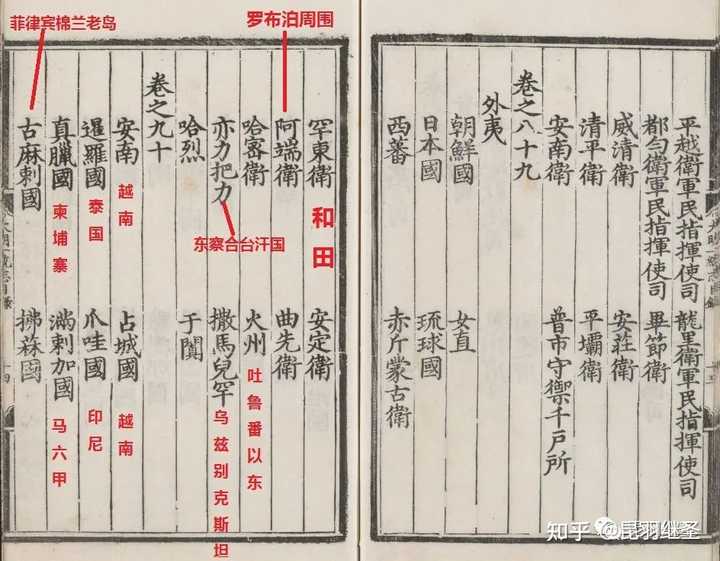 平越衛軍民指揮使司 龍里衛軍民指揮使司
都勻衛軍民指揮使司 畢節衛
威清衛 安莊衛
清平衛 平壩衛
安南衛 普市守禦千戶所
卷之八十九
外夷
朝鮮國 女直
日本國 琉球國
西蕃 赤斤蒙古衛
罕東衛 安定衛
和田
罗布泊周围
阿端衛 曲先衛
哈宻衛 火州
吐鲁番以东
亦力把力 撒馬兒罕
东察合台汗国
乌兹别克斯坦
哈烈 于闐
卷之九十
安南 占城國
越南
越南
暹羅國 爪哇國
泰国
印尼
真臘國 滿剌加國
柬埔寨
马六甲
菲律宾棉兰老岛
古麻剌國 拂菻國
知乎 昆羽继圣